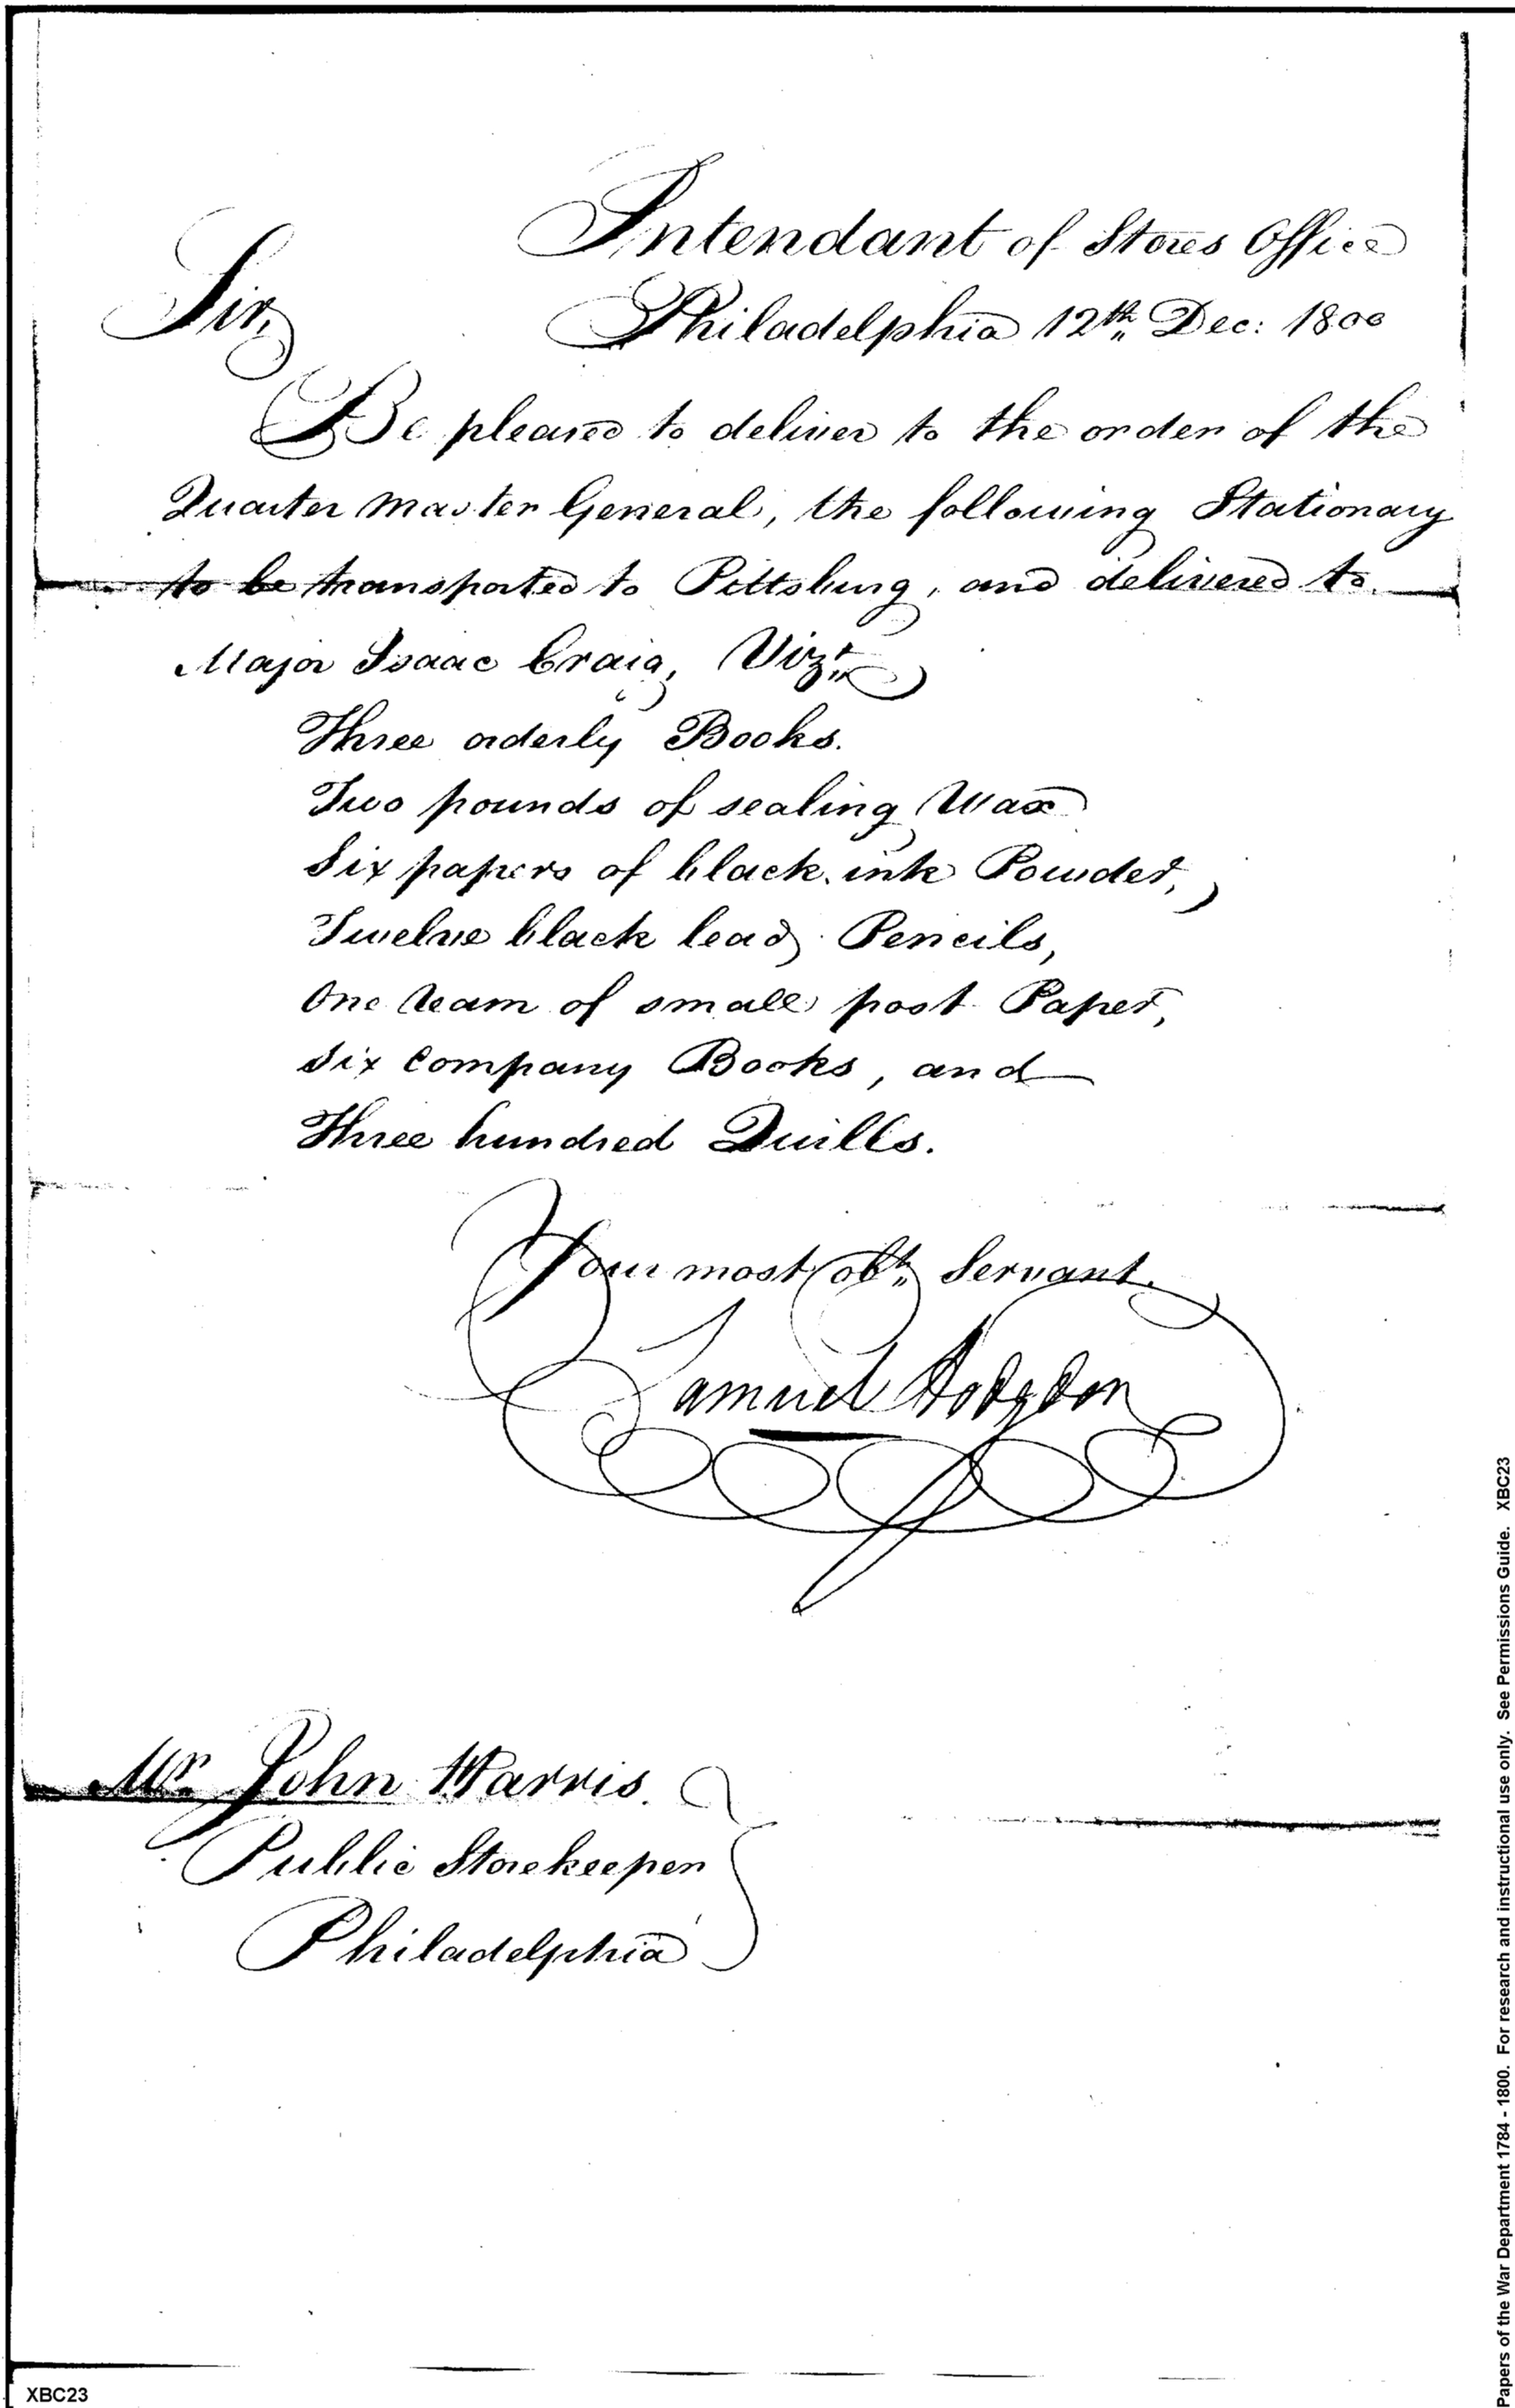 Intendant of Stores Office
Sir,
Philadelphia 12th Dec: 1800
Be pleased to deliver to the order of the
Quarter Master General, the following Stationary
to be transported to Pittsburg, and delivered to
Major Isaac Craig, Vizt
Three orderly Books.
Two pounds of sealing Wax
Six papers of black ink Powder,
Twelve black lead Pencils,
One ream of small post Paper,
Six Company Books, and
Three hundred Quills.
Your most obt Servant.
Samuel Hodgdon
Mr John Harris.
Public Storekeeper
Philadelphia
Papers of the War Department 1784 - 1800. For research and instructional use only. See Permissions Guide. XBC23
XBC23